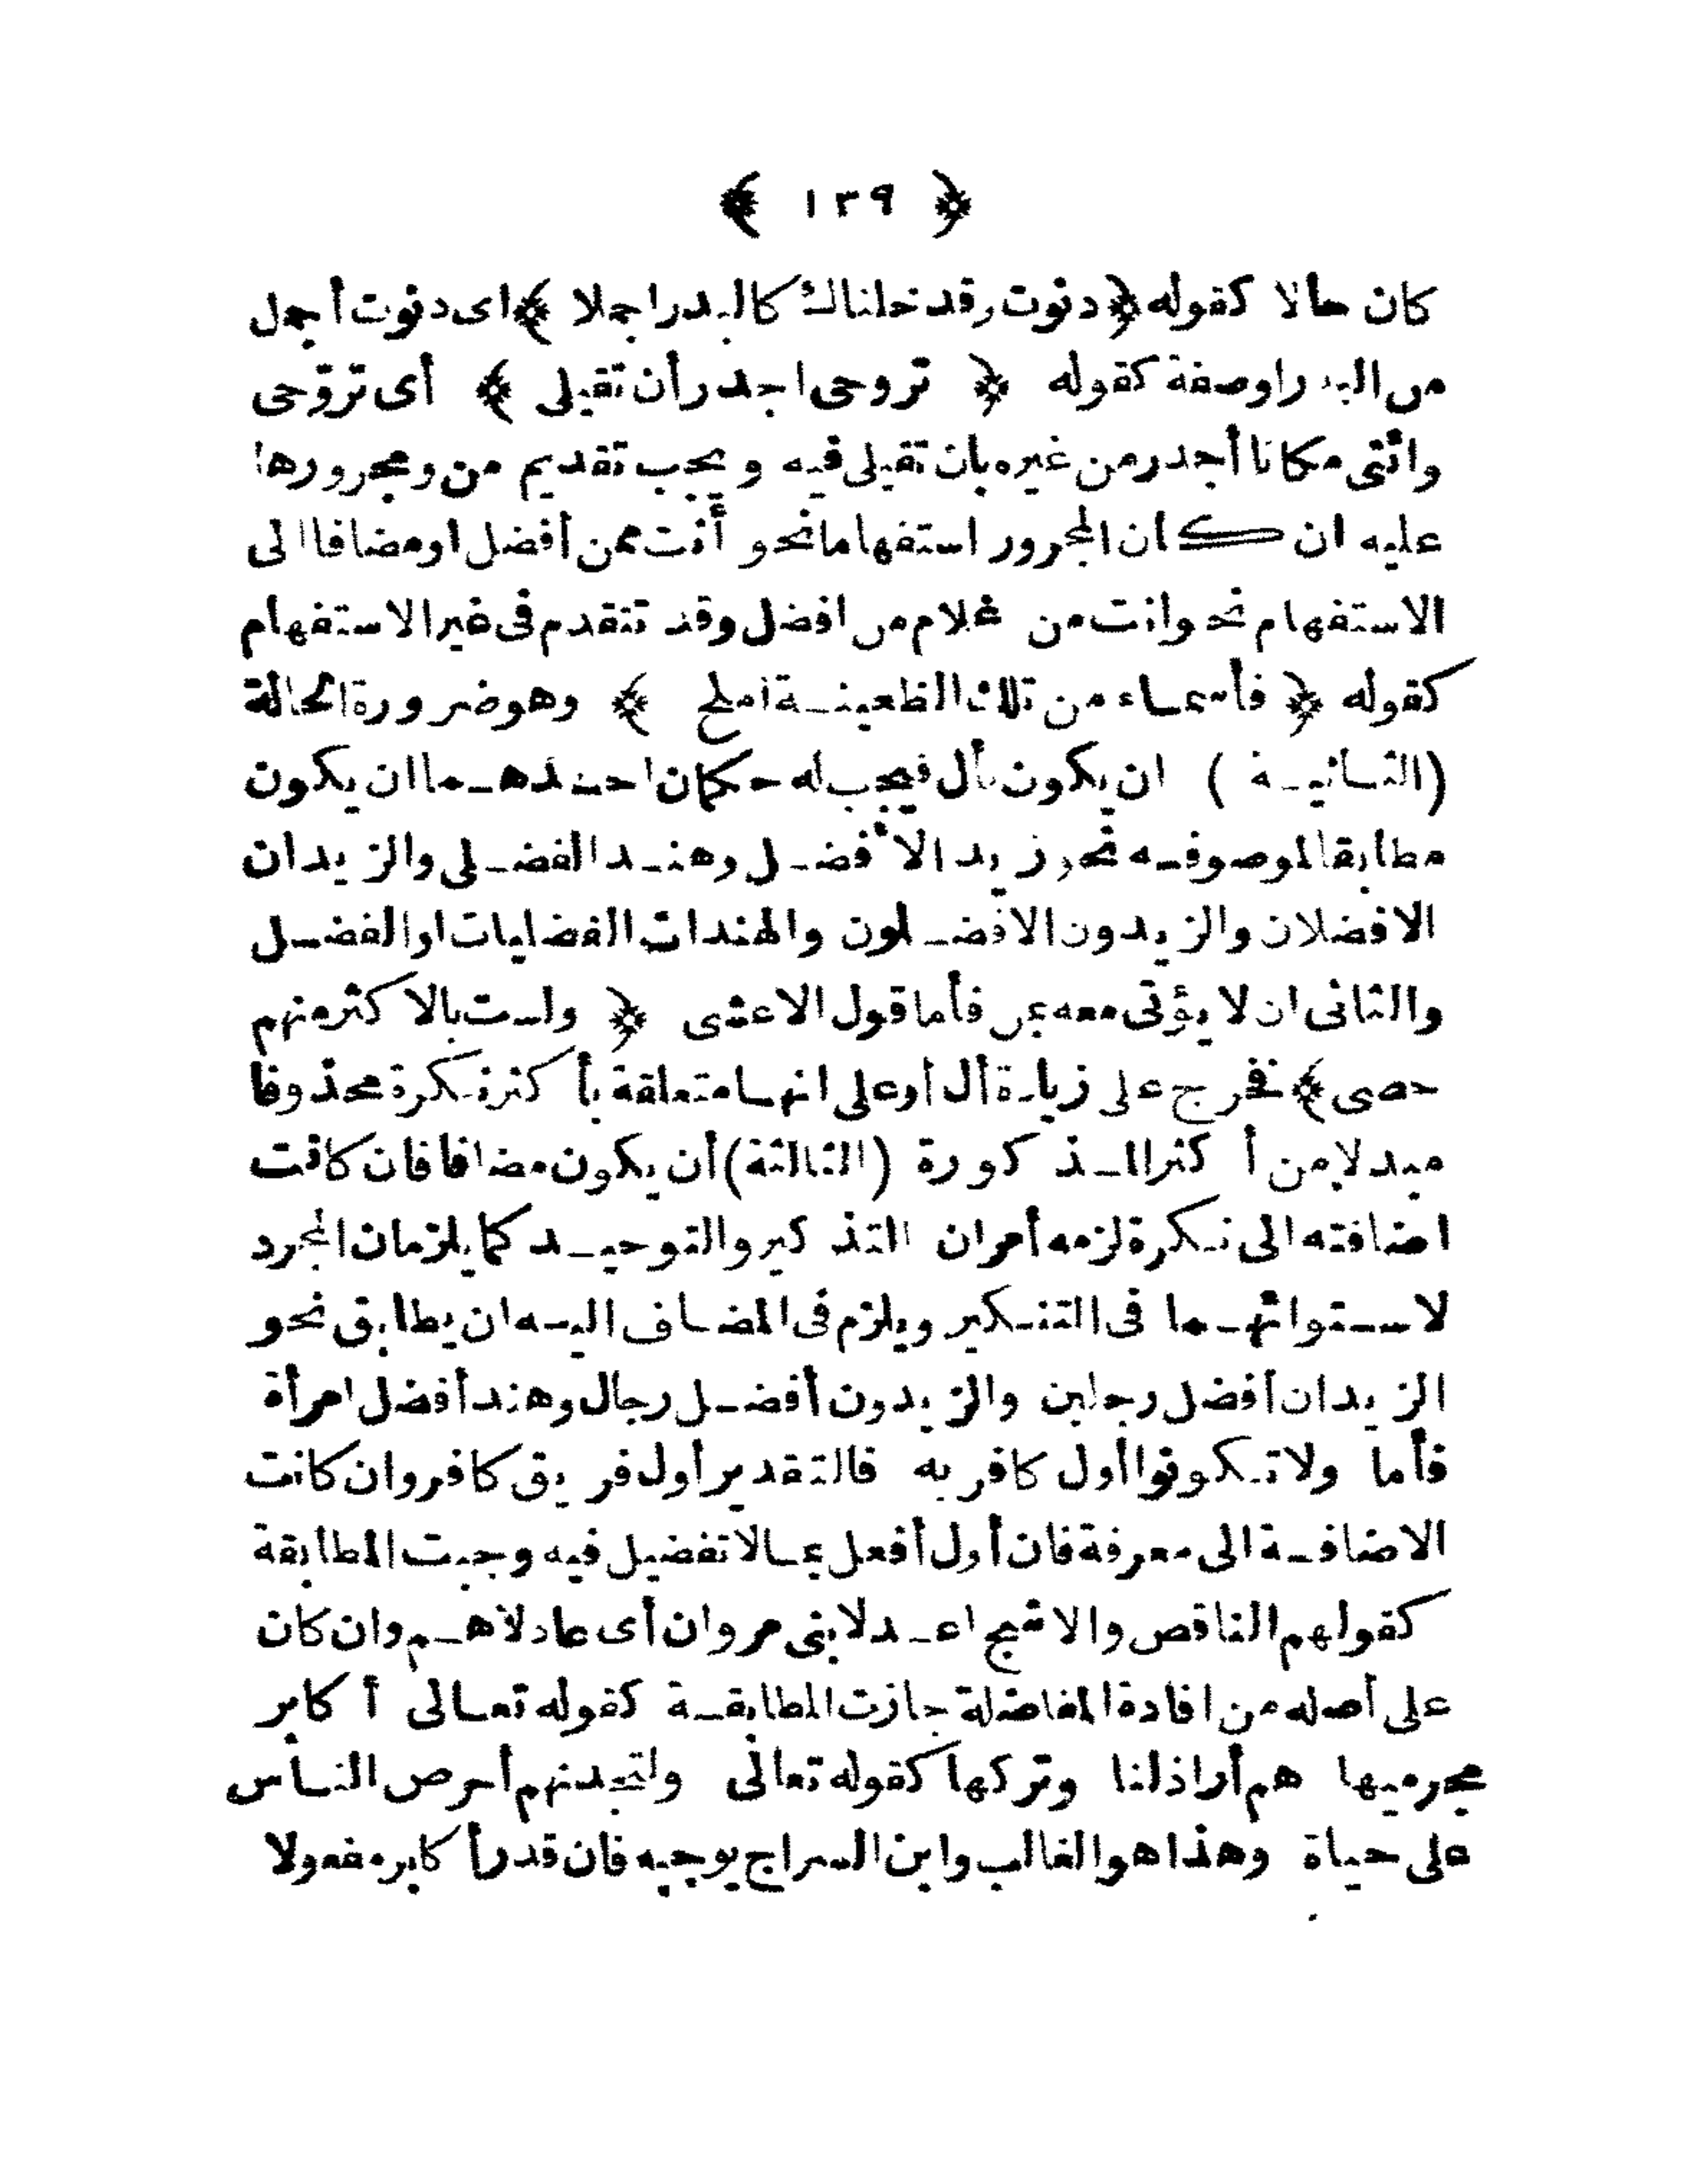 ﴿ ١٣٩ ﴾
كان حالا كقوله ﴿ دنوت وقد خلناك كالبدر اجملا ﴾ اى دنوت أجمل
من البدر اوصفة كقوله ﴿ تروحى اجدر أن تقيلى ﴾ أى تروّحى
وائتى مكانا أجدر من غيره بان تقيلى فيه ويجب تقديم من ومجرورها
عليه ان كان المجرور استفهاما نحو أنت ممن أفضل او مضافا الى
الاستفهام نحو انت من غلام من افضل وقد تتقدم فى غير الاستفهام
كقوله ﴿ فأسماء من تلك الظعينة املح ﴾ وهو ضرورة الحالة
(الثانية) ان يكون بأل فيجب له حكمان احدهما ان يكون
مطابقا لموصوفه نحو زيد الأفضل وهند الفضلى والزيدان
الافضلان والزيدون الافضلون والهندات الفضليات او الفضل
والثانى ان لا يؤتى معه بمن فأما قول الاعشى ﴿ ولست بالاكثر منهم
حصى ﴾ فخرج على زيادة أل أو على انها متعلقة بأكثر نكرة محذوفا
مبدلا من أكثر المذكورة (الثالثة) أن يكون مضافا فان كانت
اضافته الى نكرة لزمه أمران التذكير والتوحيد كما يلزمان المجرد
لاستوائهما فى التنكير ويلزم فى المضاف اليه ان يطابق نحو
الزيدان أفضل رجلين والزيدون أفضل رجال وهند أفضل امرأة
فأما ولا تكونوا أول كافر به فالتقدير أول فريق كافر وان كانت
الاضافة الى معرفة فان أول أفعل بما لا تفضيل فيه وجبت المطابقة
كقولهم الناقص والاشج اعدلا بنى مروان أى عادلاهم وان كان
على أصله من افادة المفاضلة جازت المطابقة كقوله تعالى أكابر
مجرميها هم أراذلنا وتركها كقوله تعالى ولتجدنهم أحرص الناس
على حياة وهذا هو الغالب وابن السراج يوجبه فان قدر أكابر مفعولا